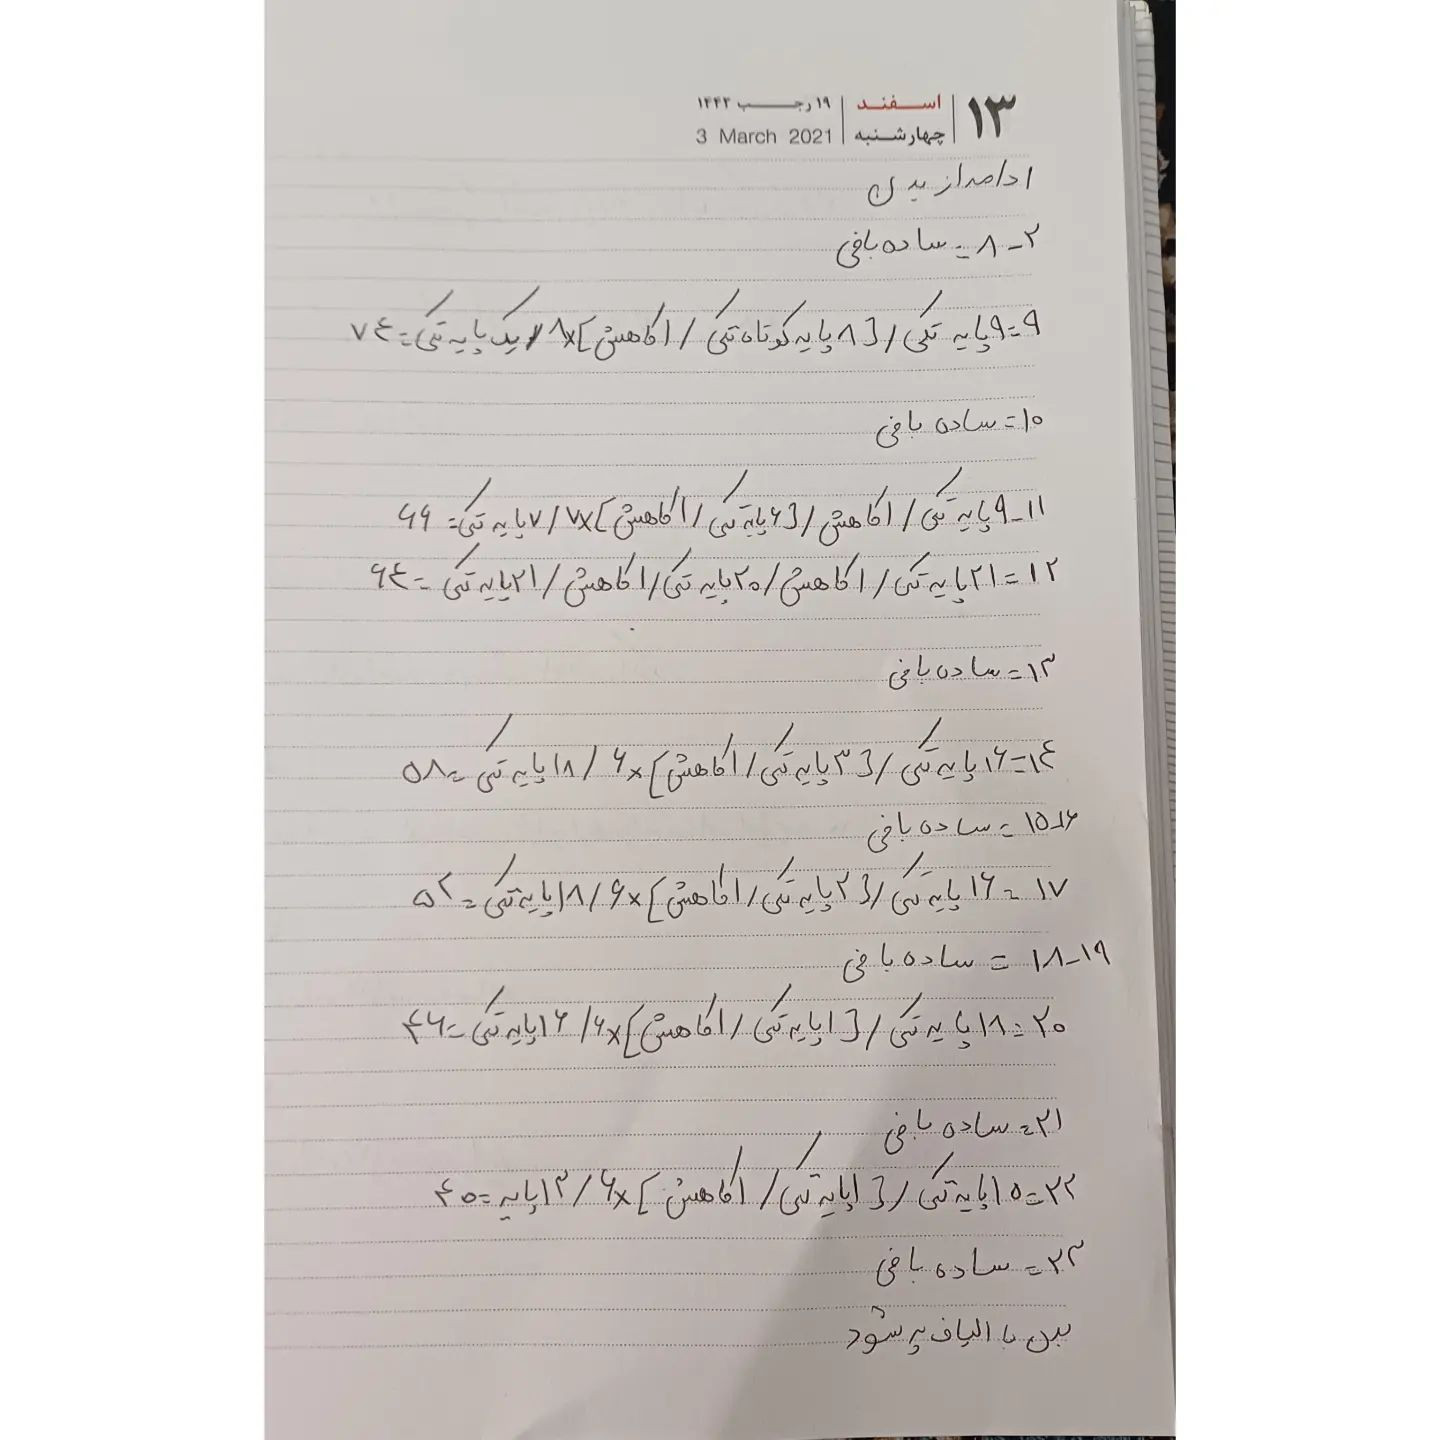 ۱۳ | اسفند | ۱۹ رجب ۱۴۴۲
چهارشنبه | 3 March 2021
ادامه از بدن
۲-۸ = ساده بافی
۹=۹پایه تکی / [۸ پایه کوتاه تکی / ۱کاهش]×۸ / یک پایه تکی=۷۴
۱۰= ساده بافی
۱۱-۹پایه تکی / ۱کاهش / [۶پایه تکی / ۱کاهش]×۷ / ۷پایه تکی= ۶۶
۱۲=۲۱پایه تکی / ۱کاهش / ۲۰پایه تکی / ۱کاهش / ۲۱پایه تکی = ۶۴
۱۳= ساده بافی
۱۴=۱۶پایه تکی / [۳پایه تکی / ۱کاهش]×۶ / ۱۸پایه تکی = ۵۸
۱۵-۱۶ = ساده بافی
۱۷ = ۱۶پایه تکی / [۲پایه تکی / ۱کاهش]×۶ / ۱۸پایه تکی = ۵۲
۱۸-۱۹ = ساده بافی
۲۰=۱۸پایه تکی / [۱پایه تکی / ۱کاهش]×۶ / ۱۶پایه تکی = ۴۶
۲۱= ساده بافی
۲۲=۱۵پایه تکی / [۱پایه تکی / ۱کاهش]×۶ / ۱۳پایه = ۴۰
۲۳= ساده بافی
بدن با الیاف پر شود